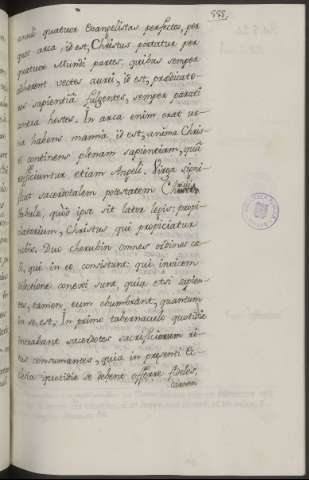 555.
annulos quatuor Evangelistas perfectos, per
quos arca, id est, Christus portatur per
quatuor Mundi partes, quibus semper
adhærent vectes aurei, id est, prædicato-
res sapientiâ fulgentes, semper parati
contra hostes. In arca enim erat ur-
na habens manna, id est, anima Chris-
ti continens plenam sapientiam, quâ
reficiuntur etiam Angeli. Virga signi-
ficat sacerdotalem potestatem Christi
tabulæ, quòd ipse sit lator legis: propi-
ciatorium, Christus qui propiciatur
nobis. Duo cherubin omnes ordines cæ-
li, qui in eo consistunt: qui invicem
dilectione conexi sunt, quia etsi sapien-
tes, tamen eum obumbrant, quantum
in se est. In primo tabernaculo quotidie
intrabant sacerdotes sacrificiorum ri-
tus consumantes, quia in præsenti Ec-
clesia quotidie se debent offerre fideles,